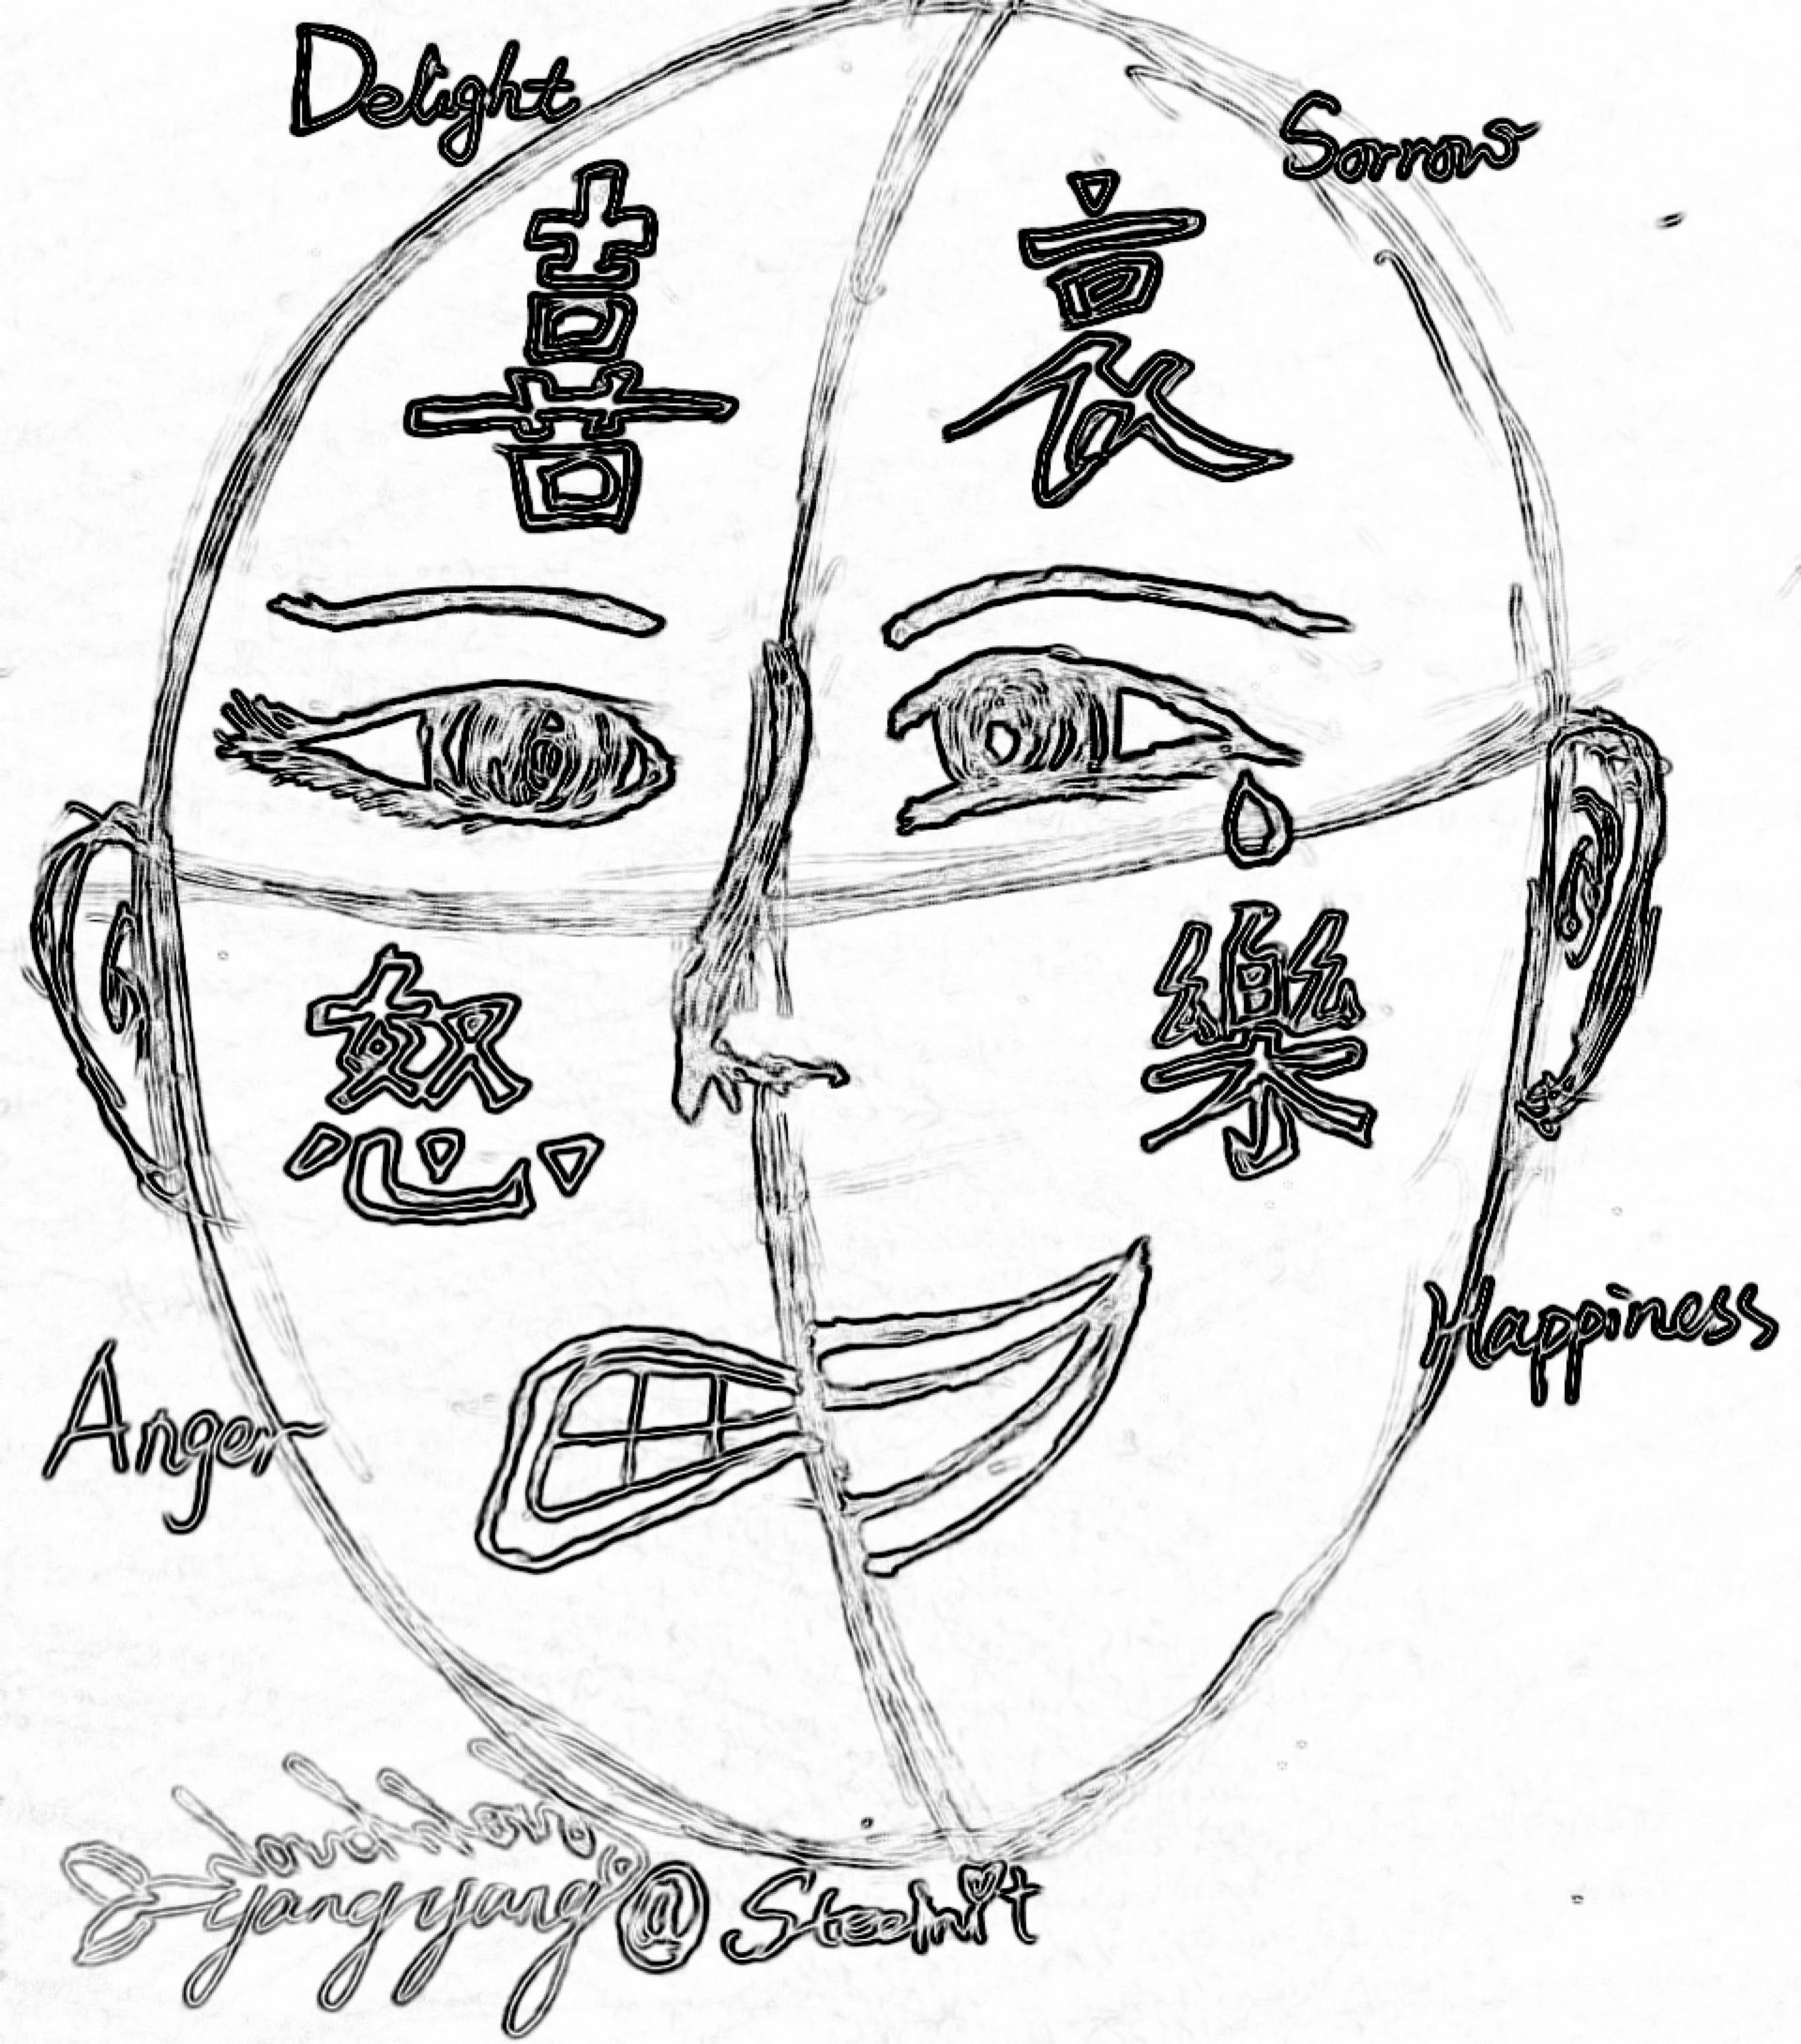 Delight
Sorrow
喜
哀
怒
樂
Happiness
Anger
yangyang @ Steemit